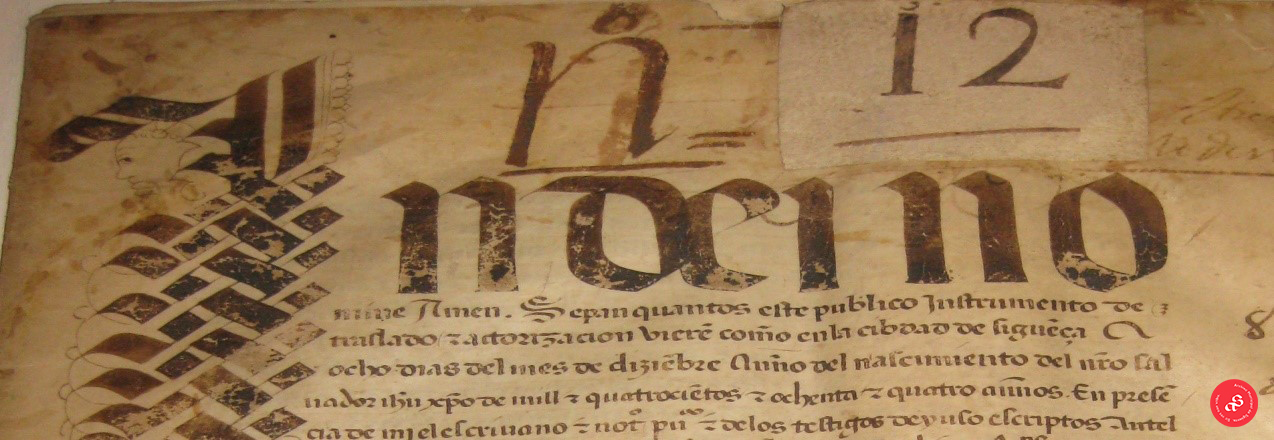 nº 12
In dei no
mine Amen. Sepan quantos este publico Instrumento de
traslado ⁊ actorizacion vierē com̃o en la cibdad de siguēça A
ocho dias del mes de diziēbre Año del nascimiento del nr̃o sal
uador ihu xp̃o de mill ⁊ quatrociētos ⁊ ochenta ⁊ quatro annos. En prese
cia de mi el escriuano ⁊ not puᶜᵒ ⁊ de los testigos de yuso escriptos Antel